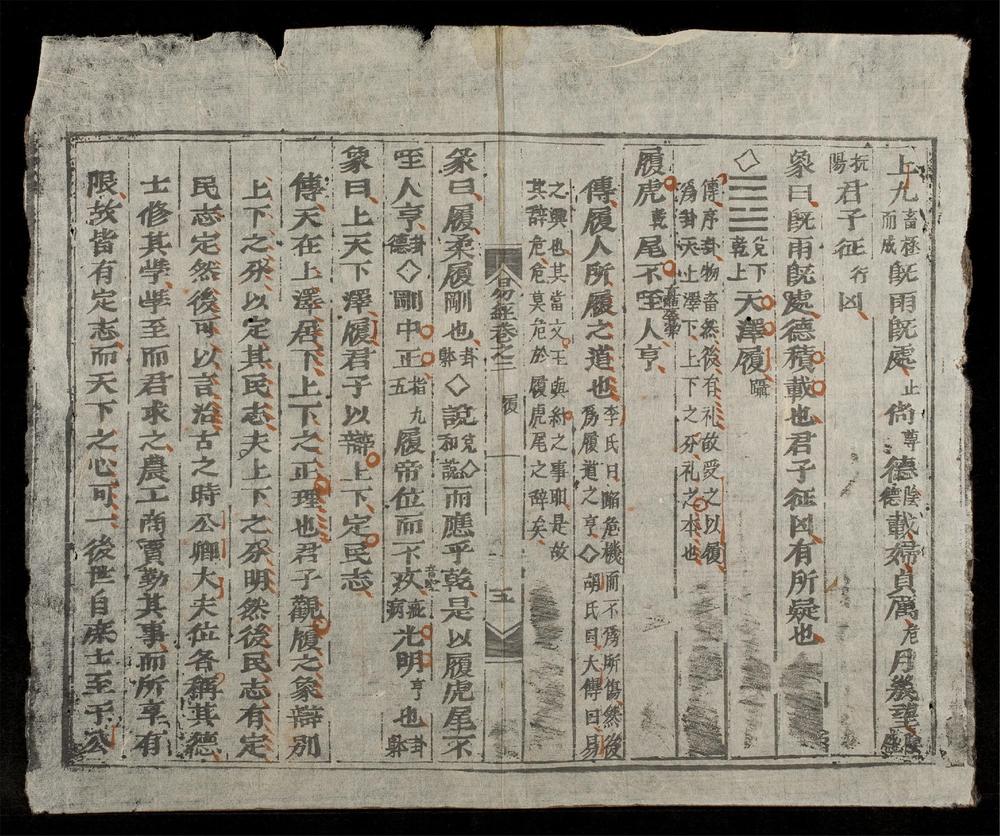 上九畜極而成旣雨旣處止尙尊德陰德載婦貞厲危月幾望陰盛
抗陽君子征行凶
象曰旣雨旣處德積載也君子征凶有所疑也
◇兌下乾上天澤履
傳序卦物畜然後有礼故受之以履
爲卦天上澤下上下之分礼之本也
履虎乾尾不咥人亨
傳履人所履之道也李氏曰蹈危機而不爲所傷然後爲履道之亨◇胡氏曰大傳曰易
之興也其當文王與紂之事耶是故其辭危危莫危於履虎尾之辭矣
易經卷之二 履 五
彖曰履柔履剛也卦躰◇說兌◇而應乎乾是以履虎尾不
咥人亨卦德◇剛中正指九五履帝位而不疚病光明亨也卦躰
象曰上天下澤履君子以辯上下定民志
傳天在上澤居下上下之正理也君子觀履之象辯別
上下之分以定其民志夫上下之分明然後民志有定
民志定然後可以言治古之時公卿大夫位各稱其德
士修其學學至而君求之農工商賈勤其事而所享有
限故皆有定志而天下之心可一後世自庶士至于公